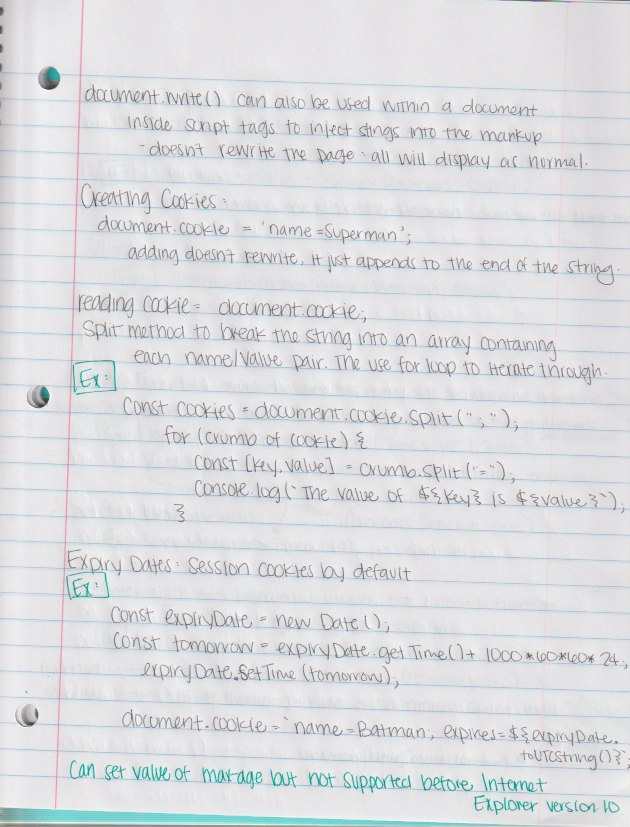 document.write() can also be used within a document
inside script tags to inject stings into the markup
- doesnt rewrite the page · all will display as normal.
Creating Cookies:
document.cookie = 'name=Superman';
adding doesn't rewrite, it just appends to the end of the string.
reading cookie = document.cookie;
Split method to break the string into an array containing
each name/value pair. The use for loop to iterate through.
Ex:
Const cookies = document.cookie.split("; ");
for (crumb of cookie) {
const [key, value] = crumb.split("=");
console.log(`The value of ${key} is ${value}`);
}
Expiry Dates: Session cookies by default
Ex:
Const expiryDate = new Date();
Const tomorrow = expiryDate.getTime() + 1000*60*60*24;
expiryDate.setTime(tomorrow);
document.cookie = `name=Batman; expires=${expiryDate.
toUTCString()}`;
Can set value of max-age but not supported before Internet
Explorer version 10